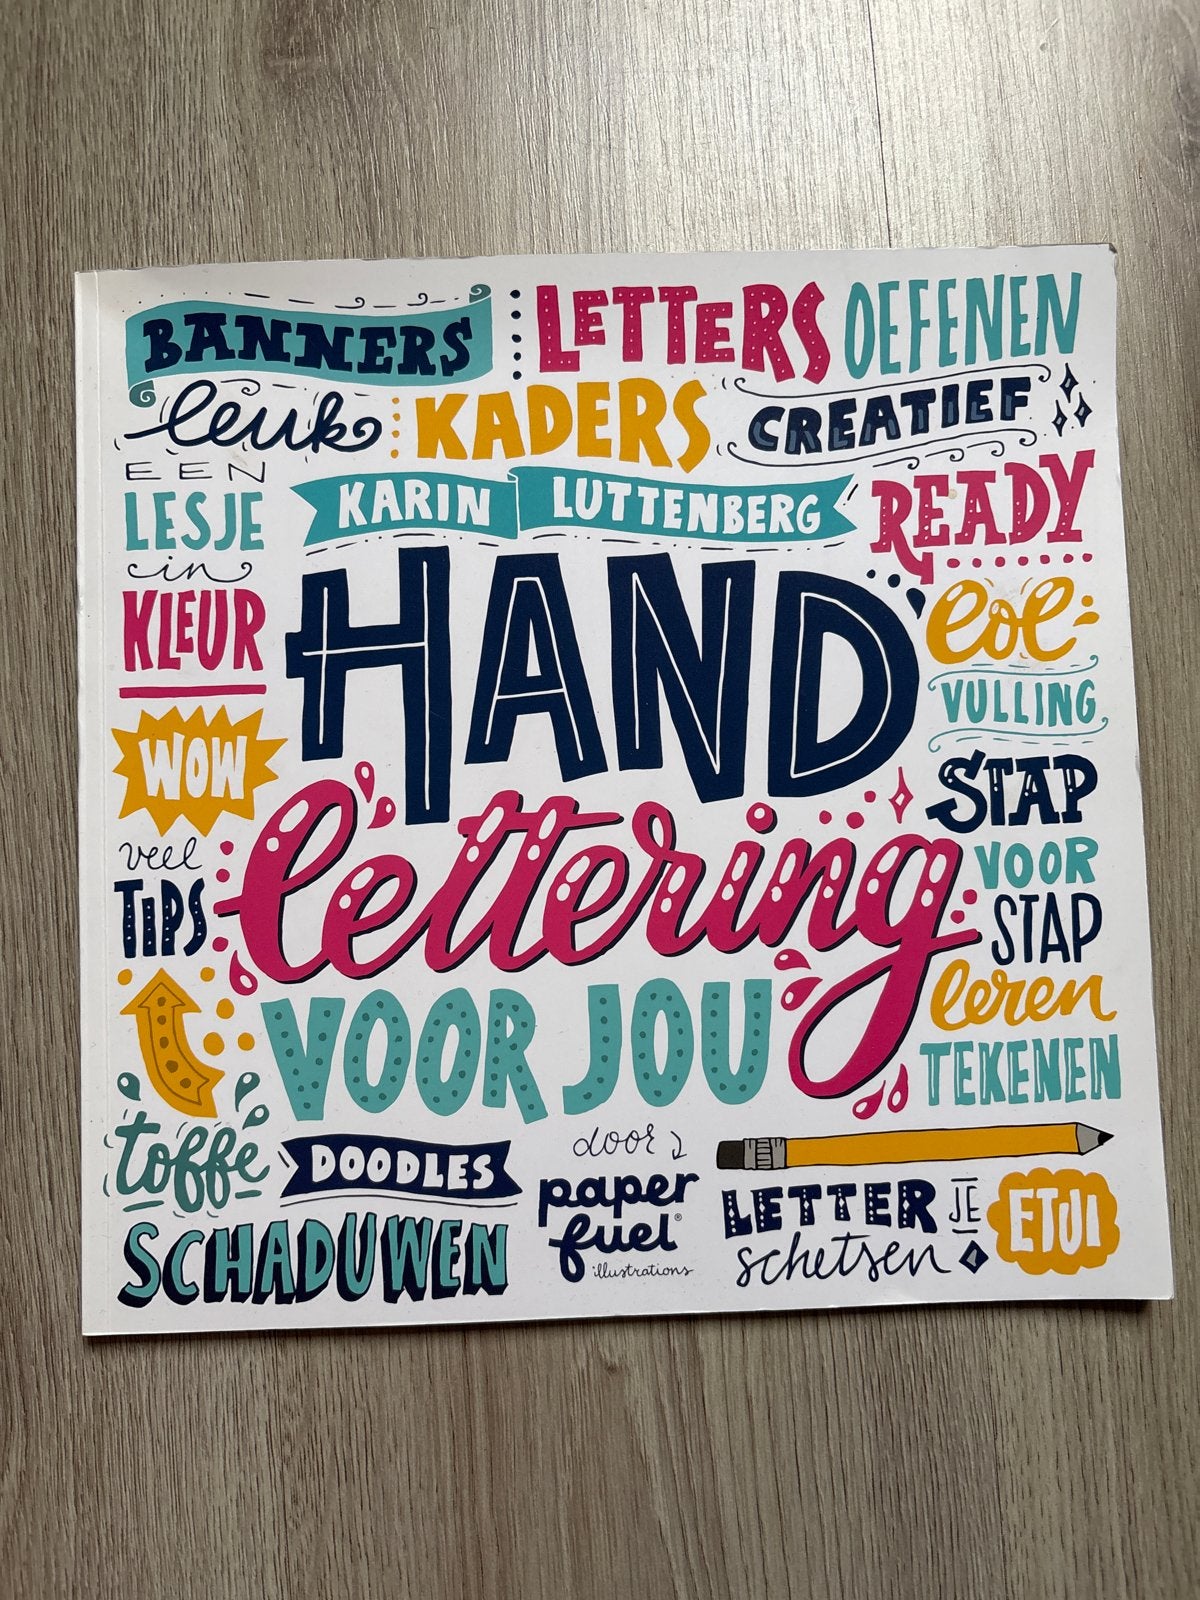 BANNERS LETTERS OEFENEN
leuk KADERS CREATIEF
EEN
LESJE
in
KLEUR
WOW
veel
TIPS
KARIN LUTTENBERG
HAND
lettering
VOOR JOU
READY
lol
VULLING
STAP
VOOR
STAP
leren
TEKENEN
toffe DOODLES
SCHADUWEN
door
paper
fuel®
illustrations
LETTER JE ETUI
schetsen